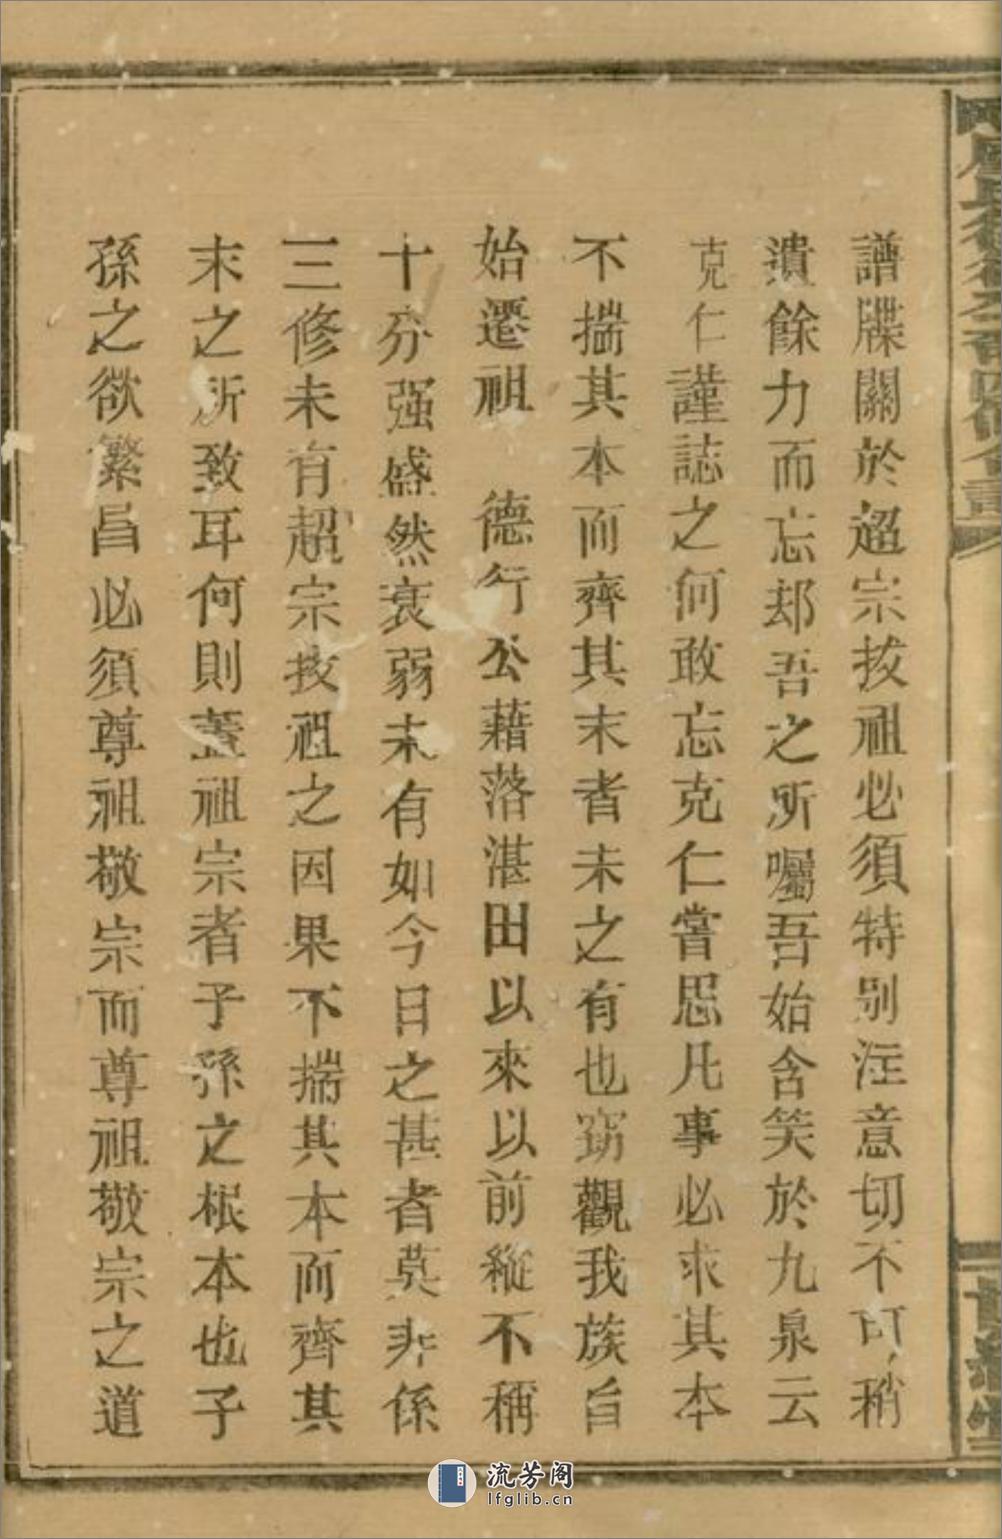 譜牒關於超宗拔祖必須特别注意切不可稍
遺餘力而忘却吾之所囑吾始含笑於九泉云
克仁謹誌之何敢忘克仁嘗思凡事必求其本
不揣其本而齊其末者未之有也窃觀我族旨
始遷祖　德行公藉落湛田以來以前縱不稱
十分强盛然衰弱未有如今日之甚者莫非係
三修未有超宗拔祖之因果不揣其本而齊其
末之所致耳何則蓋祖宗者子孫之根本也子
孫之欲繁昌必須尊祖敬宗而尊祖敬宗之道
流芳阁
lfglib.cn